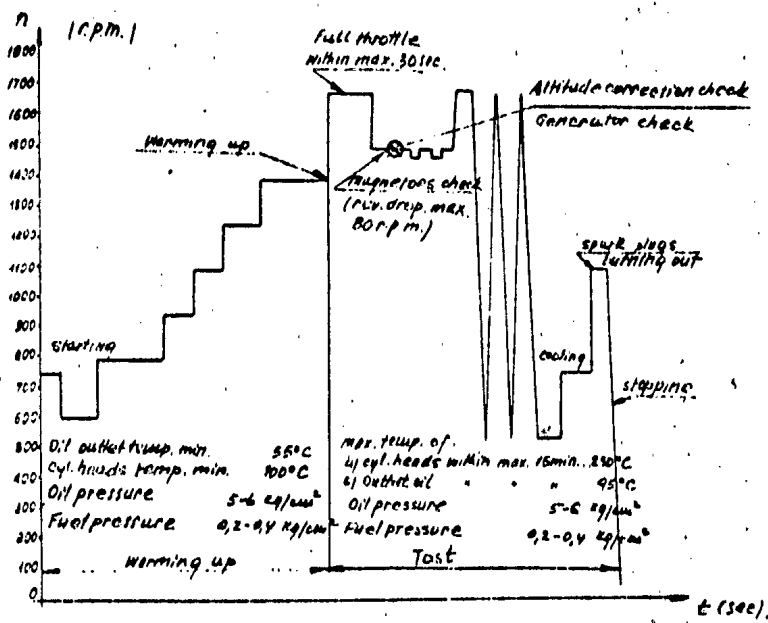 n
(r.p.m.)
1800
1700
1600
1500
1400
1300
1200
1100
1000
900
800
700
600
500
400
300
200
100
0
Full throttle
within max. 30 sec.
Altitude correction check
Generator check
Warming up
magnetos check
(rev. drop. max.
80 r.p.m.)
spark plugs
burning out
Starting
cooling
stopping
Oil outlet temp. min. 55°C
Cyl. heads temp. min. 100°C
Oil pressure 5-6 kg/cm²
Fuel pressure 0,2-0,4 kg/cm²
max. temp. of.
a/ cyl. heads within max. 15min.. 230°C
b/ Outlet oil " " " 95°C
Oil pressure 5-6 kg/cm²
Fuel pressure 0,2-0,4 kg/cm²
Warming up
Test
t (sec).